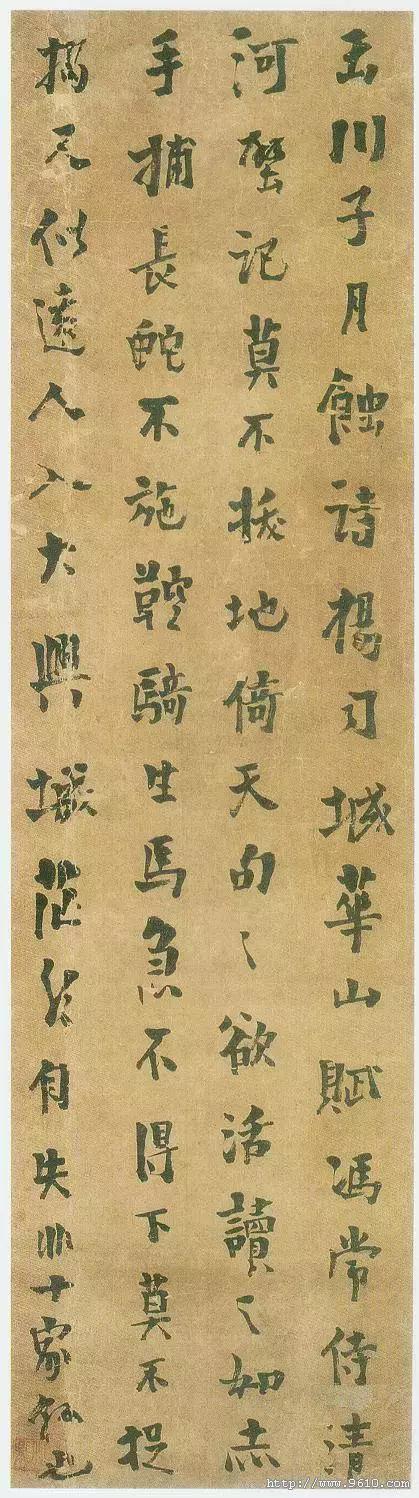 玉川子月蝕詩楊司城華山賦馮常侍清
河壁記莫不拔地倚天句〻欲活讀之如赤
手捕長蛇不施鞚騎生馬急不得下莫不捉
搦又似遠人入大興城茫然自失非十家
http://www.9610.com